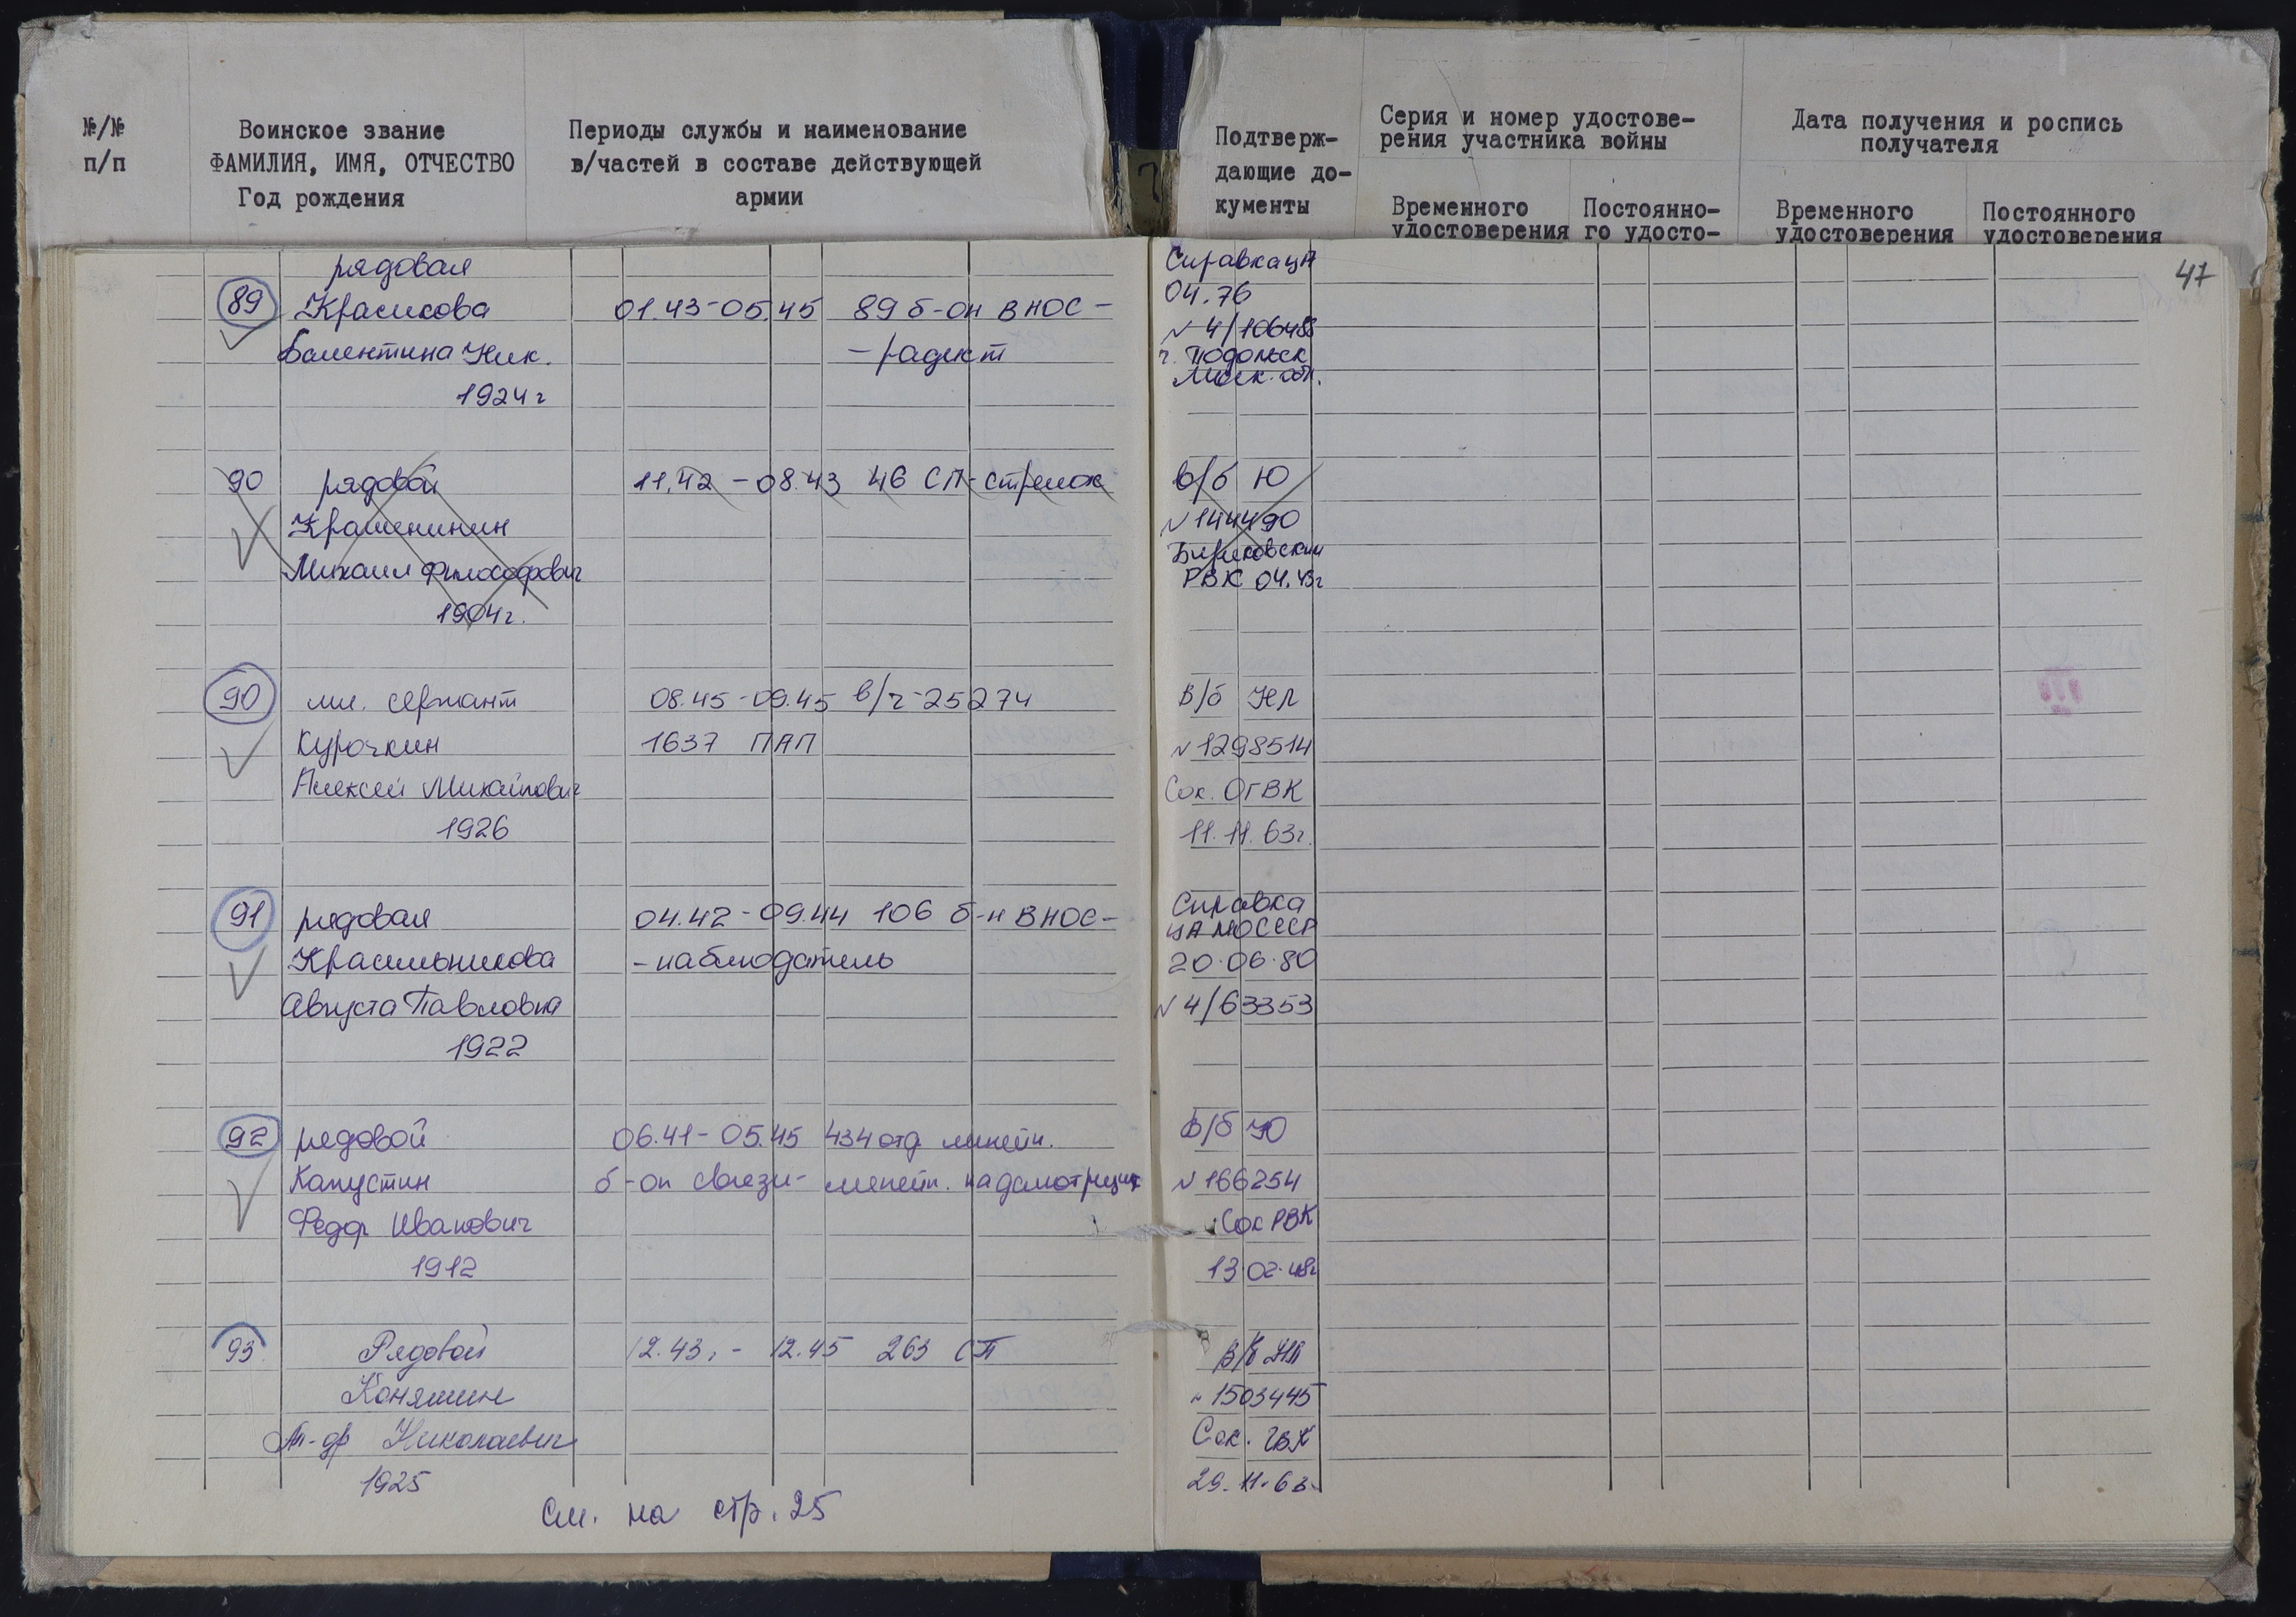 №/№
п/п
Воинское звание
ФАМИЛИЯ, ИМЯ, ОТЧЕСТВО
Год рождения
Периоды службы и наименование
в/частей в составе действующей
армии
Подтверж-
дающие до-
кументы
Серия и номер удостове-
рения участника войны
Временного
удостоверения
Постоянно-
го удосто-
Дата получения и роспись
получателя
Временного
удостоверения
Постоянного
удостоверения
47
рядовая
89 Красикова 01.43-05.45 89 б-он ВНОС -
Валентина Ник. - радист
1924г
Справка ЦА
04.76
N 4/106488
г. Подольск
Моск. обл.
90 рядовой 11.42 - 08.43 46 СП - стрелок
Крашенинин
Михаил Философович
1904г.
в/б Ю
N 144490
РВК 04.43г
90 мл. сержант 08.45-09.45 в/ч-25274
Курочкин 1637 ПАП
Алексей Михайлович
1926
В/б НЛ
N 1298514
Сок. ОГВК
11.11.63г.
91 рядовая 04.42-09.44 106 б-н ВНОС -
Красильникова - наблюдатель
Августа Павловна
1922
Справка
ЦАМО СССР
20.06.80
N 4/63353
92 рядовой 06.41-05.45 434 отд. линейн.
Капустин б-он связи - линейн. надсмотрщик
Федор Иванович
1912
В/б Ю
N 166254
Сок РВК
13.02.48г
93 Рядовой 12.43. - 12.45 263 СП
Коняшин
Ал-др Николаевич
1925
В/б НЛ
N 1503445
Сок. ГВК
29.11.63.
См. на стр. 25